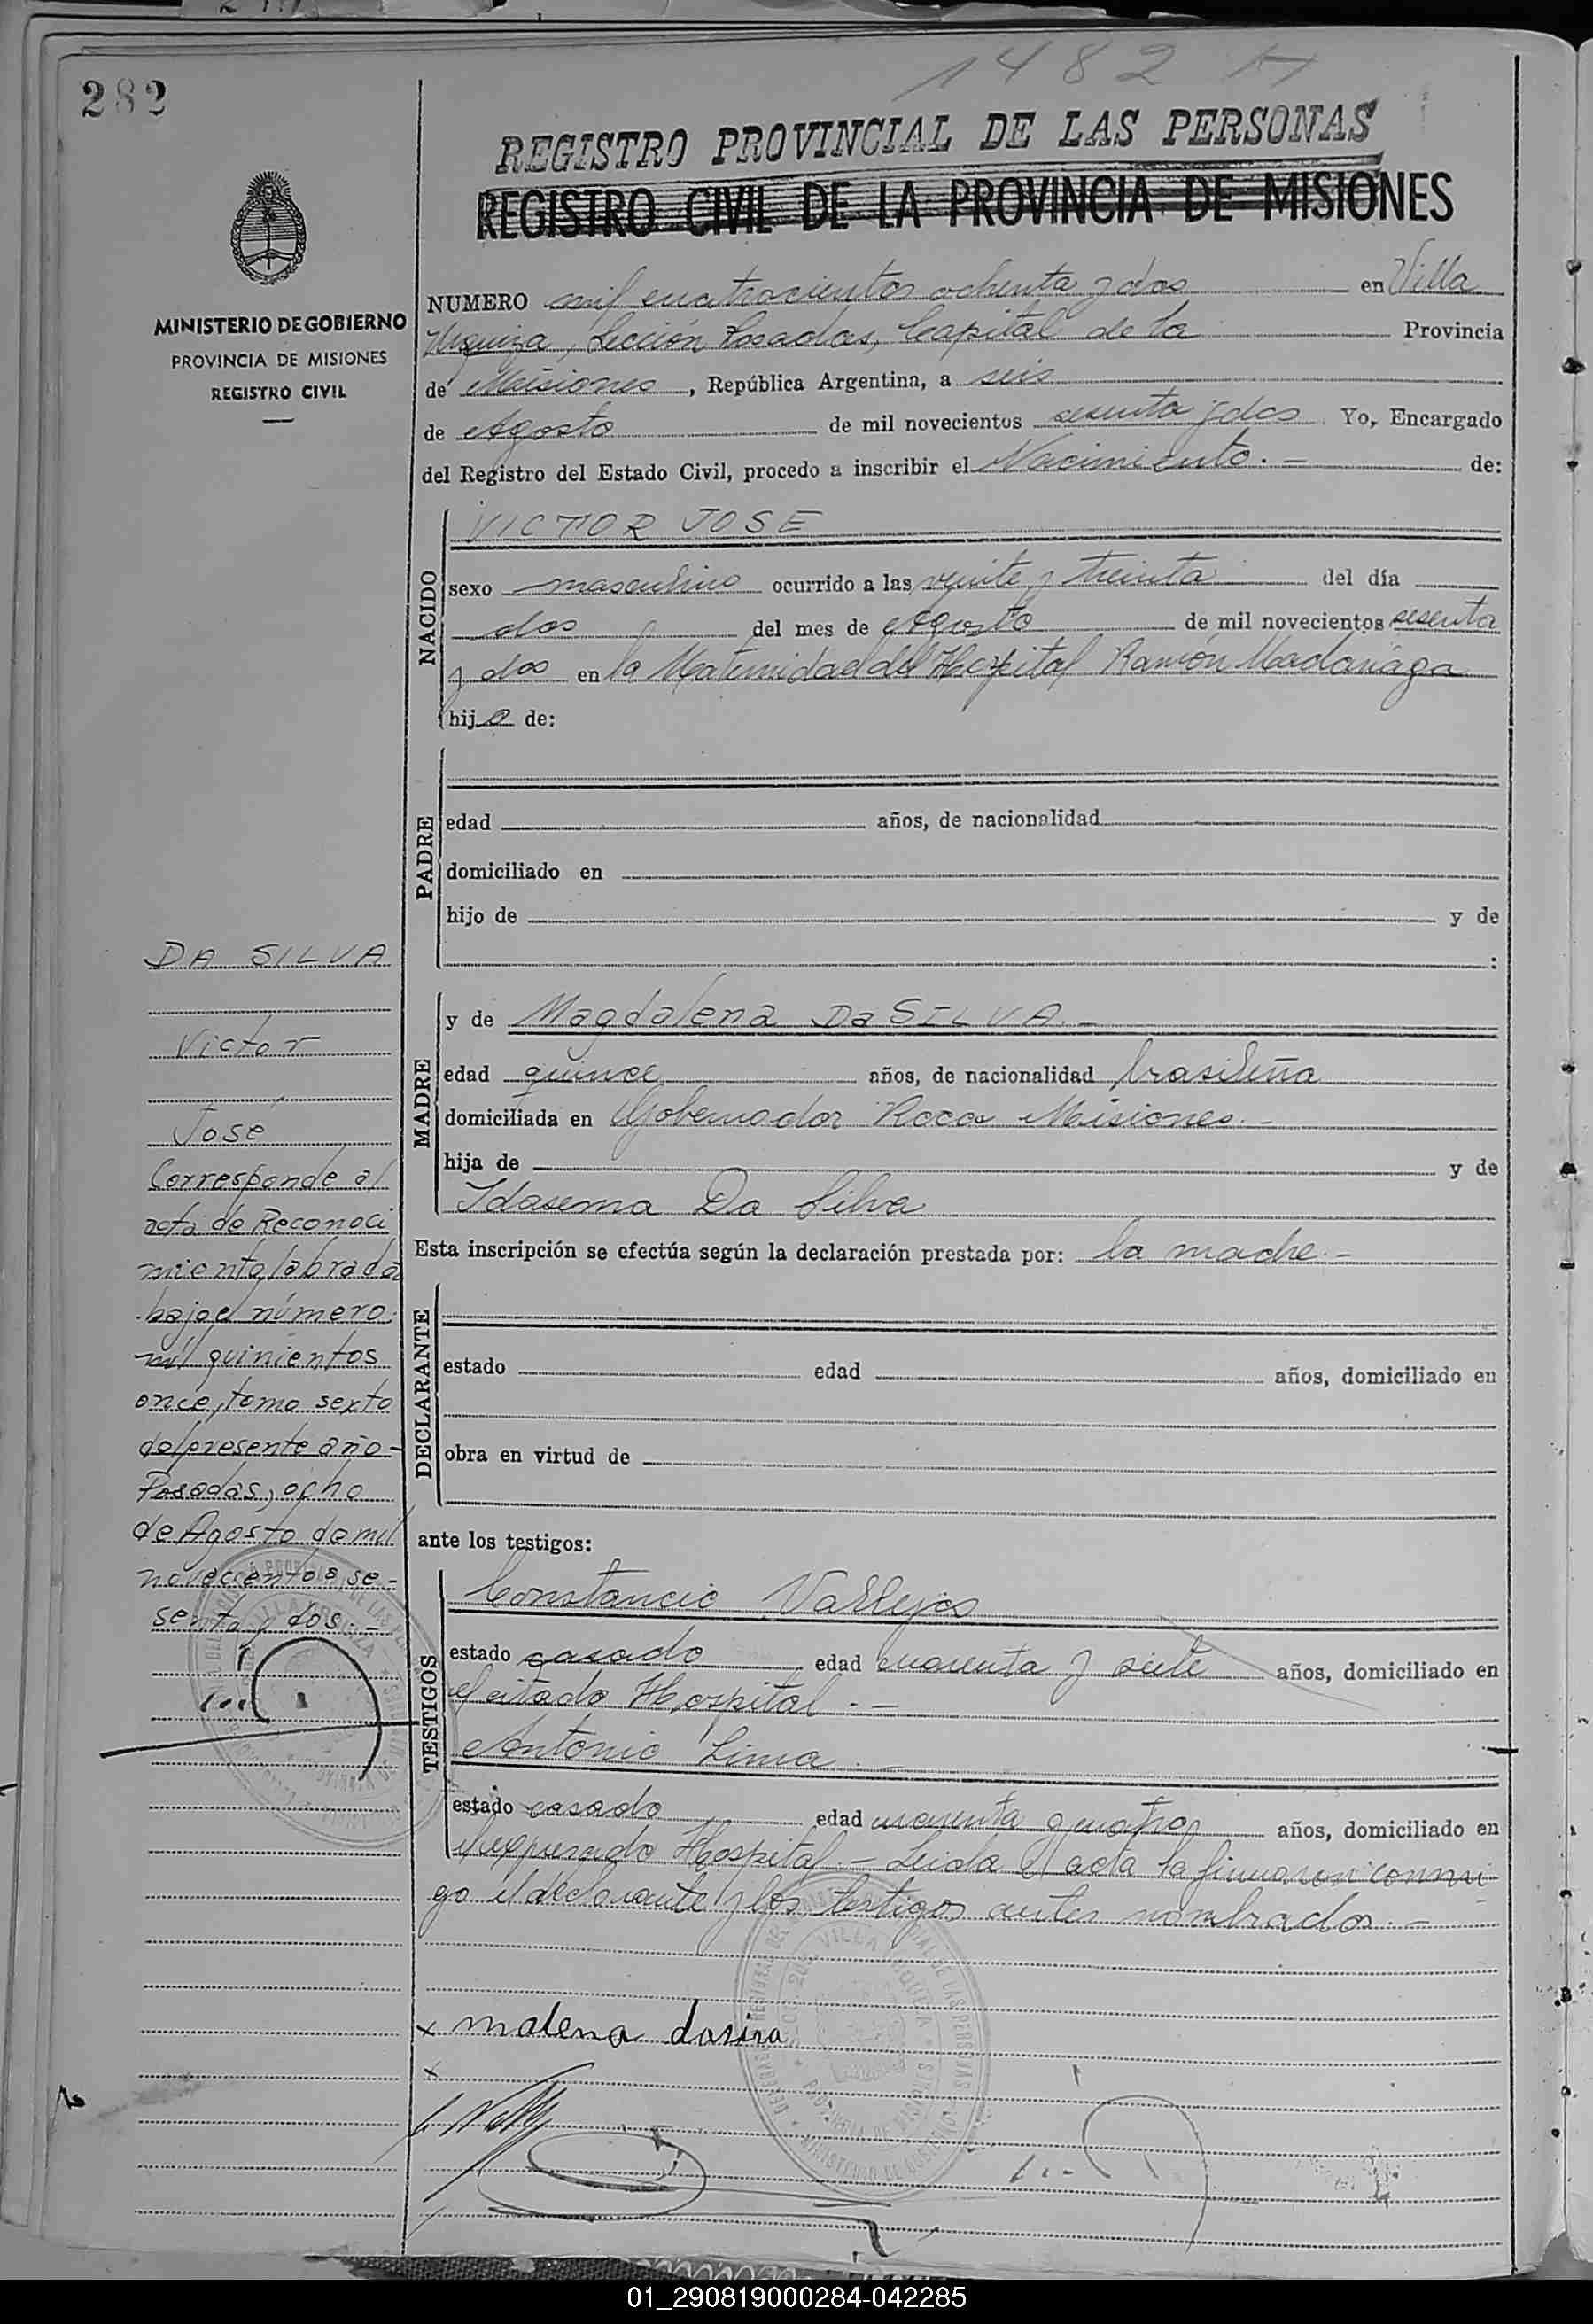 282
1482
REGISTRO PROVINCIAL DE LAS PERSONAS
REGISTRO CIVIL DE LA PROVINCIA DE MISIONES
MINISTERIO DE GOBIERNO
PROVINCIA DE MISIONES
REGISTRO CIVIL
NUMERO mil cuatrocientos ochenta y dos en Villa
Urquiza, Sección Posadas, Capital de la Provincia
de Misiones, República Argentina, a seis
de Agosto de mil novecientos sesenta y dos Yo, Encargado
del Registro del Estado Civil, procedo a inscribir el Nacimiento.- de:
NACIDO
VICTOR JOSE
sexo masculino ocurrido a las veinte y treinta del día
dos del mes de Agosto de mil novecientos sesenta
y dos en la Maternidad del Hospital Ramón Madariaga
hijo de:
PADRE
edad años, de nacionalidad
domiciliado en
hijo de y de
:
MADRE
y de Magdalena Da SILVA.-
edad quince años, de nacionalidad brasileña
domiciliada en Gobernador Roca Misiones.-
hija de y de
Idasema Da Silva
Esta inscripción se efectúa según la declaración prestada por: la madre.-
DECLARANTE
estado edad años, domiciliado en
obra en virtud de
ante los testigos:
TESTIGOS
Constancio Vallejos
estado casado edad cuarenta y siete años, domiciliado en
el citado Hospital.-
Antonio Lima.-
estado casado edad cuarenta y cuatro años, domiciliado en
el expresado Hospital.- Leida el acta la firmaron conmi
go el declarante y los testigos antes nombrados.-
x malena dasiva
x
DA SILVA
Victor
José
Corresponde al
acta de Reconoci
miento labrada
bajo el número
mil quinientos
once, tomo sexto
del presente año-
Posadas, ocho
de Agosto de mil
novecientos se-
senta y dos.-
VILLA URQUIZA
01_290819000284-042285